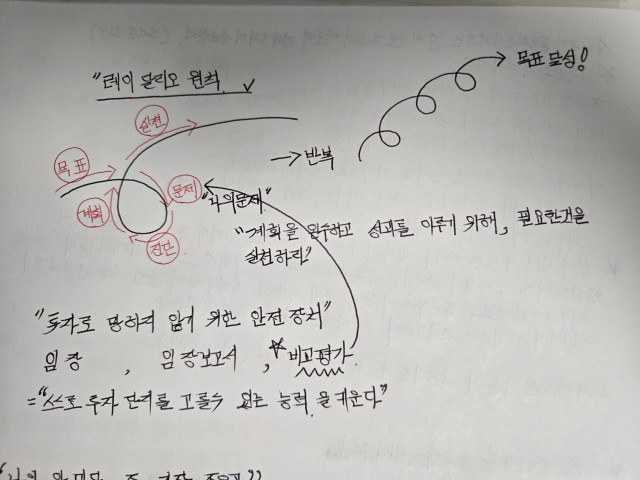 "레이 달리오 원칙"
목표 달성!
실천
목표
→ 반복
문제
"나의문제"
계획
진단
"계획을 완수하고 성과를 이루기 위해, 필요한것을
실천하라"
"투자로 망하지 않기 위한 안전 장치"
임장 , 임장보고서, ☆비교평가.
="스스로 투자 단지를 고를수 있는 능력을 키운다"